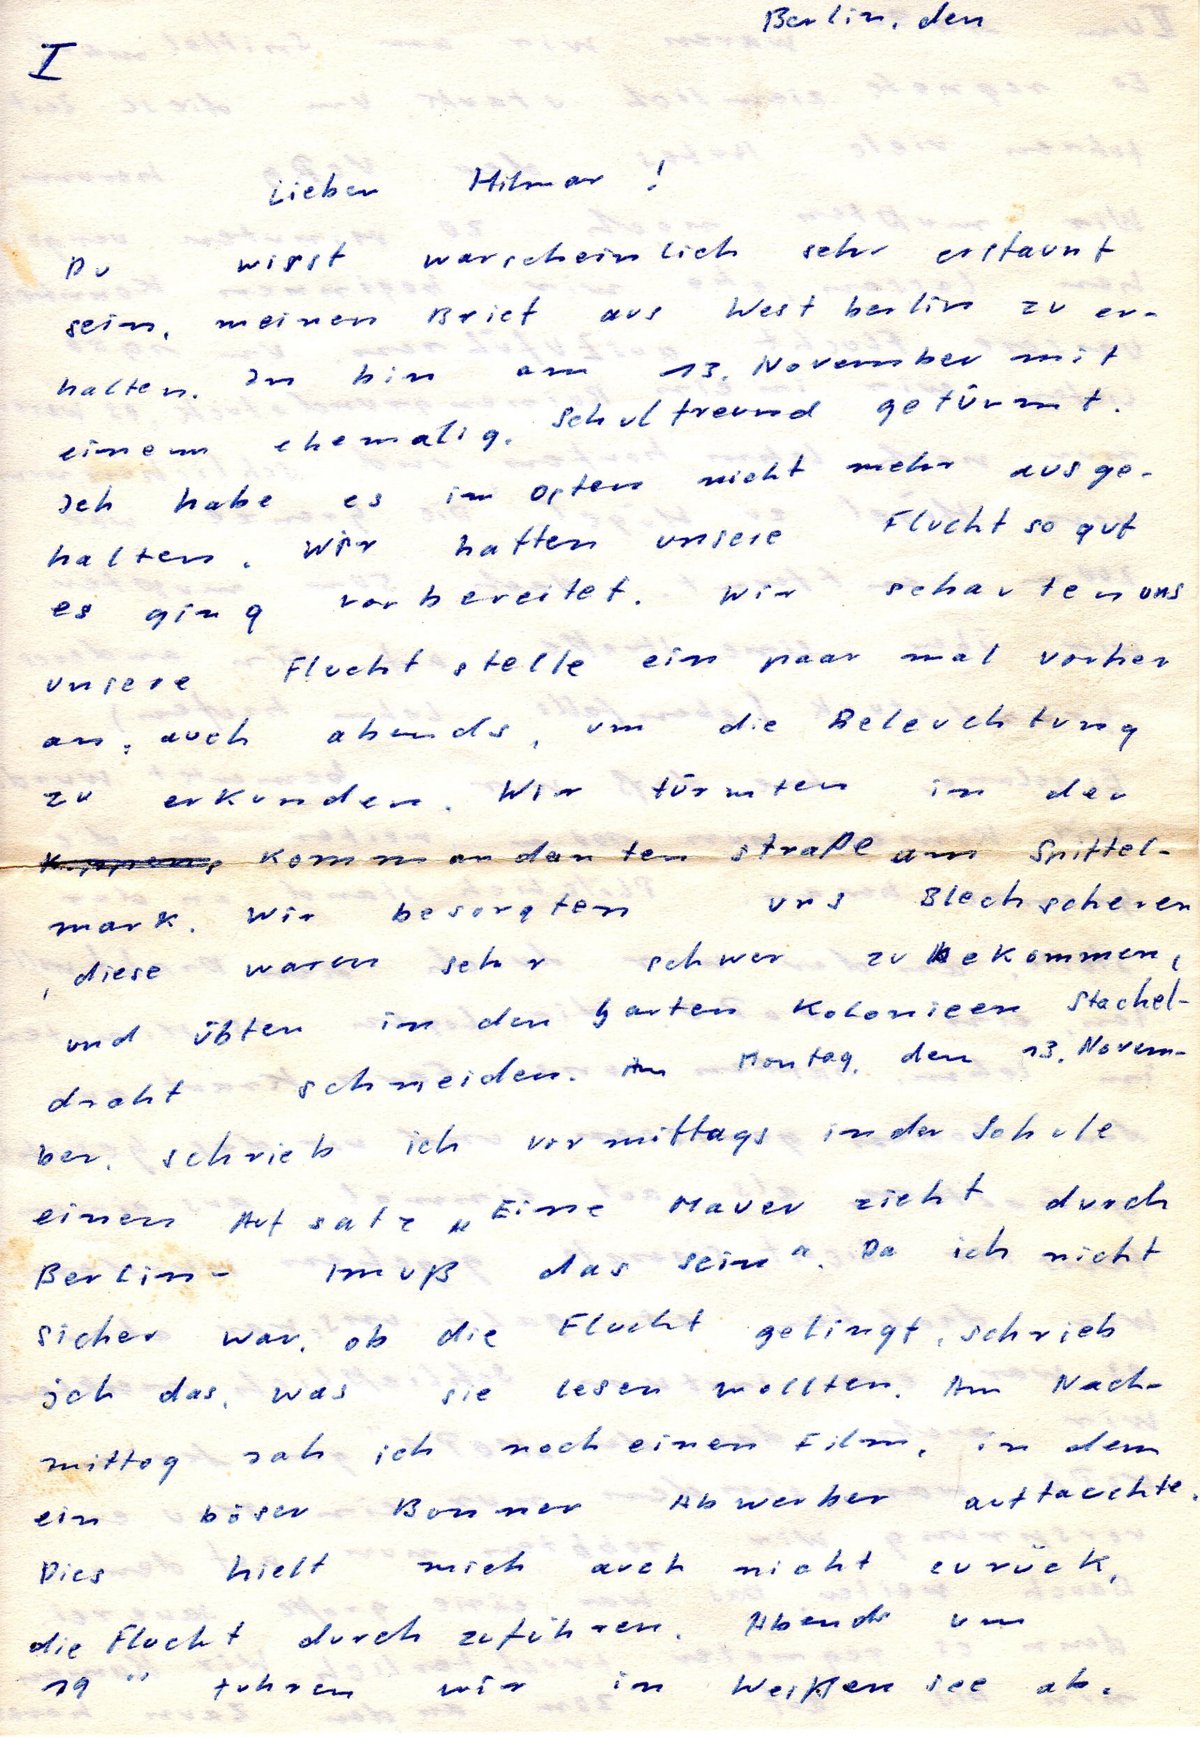 Berlin, den
I
Lieber Hilmar !
Du wirst warscheinlich sehr erstaunt
sein, meinen Brief aus Westberlin zu er-
halten. In bin am 13. November mit
einem ehemalig. Schulfreund getürmt.
Ich habe es im Osten nicht mehr ausge-
halten. Wir hatten unsere Flucht so gut
es ging vorbereitet. Wir schauten uns
unsere Fluchtstelle ein paar mal vorher
an, auch abends, um die Beleuchtung
zu erkunden. Wir türmten in der
Kommandantenstraße am Spittel-
mark. Wir besorgten uns Blechscheren
, diese waren sehr schwer zu bekommen,
und übten in den Gartenkolonieen Stachel-
draht schneiden. Am Montag, den 13. Novem-
ber, schrieb ich vormittags in der Schule
einen Aufsatz „Eine Mauer zieht durch
Berlin - muß das sein". Da ich nicht
sicher war, ob die Flucht gelingt, schrieb
ich das, was sie lesen wollten. Am Nach-
mittag sah ich noch einen Film, in dem
ein böser Bonner Abwerber auftauchte.
Dies hielt mich auch nicht zurück,
die Flucht durchzuführen. Abends um
19 °° fuhren wir in Weißensee ab.